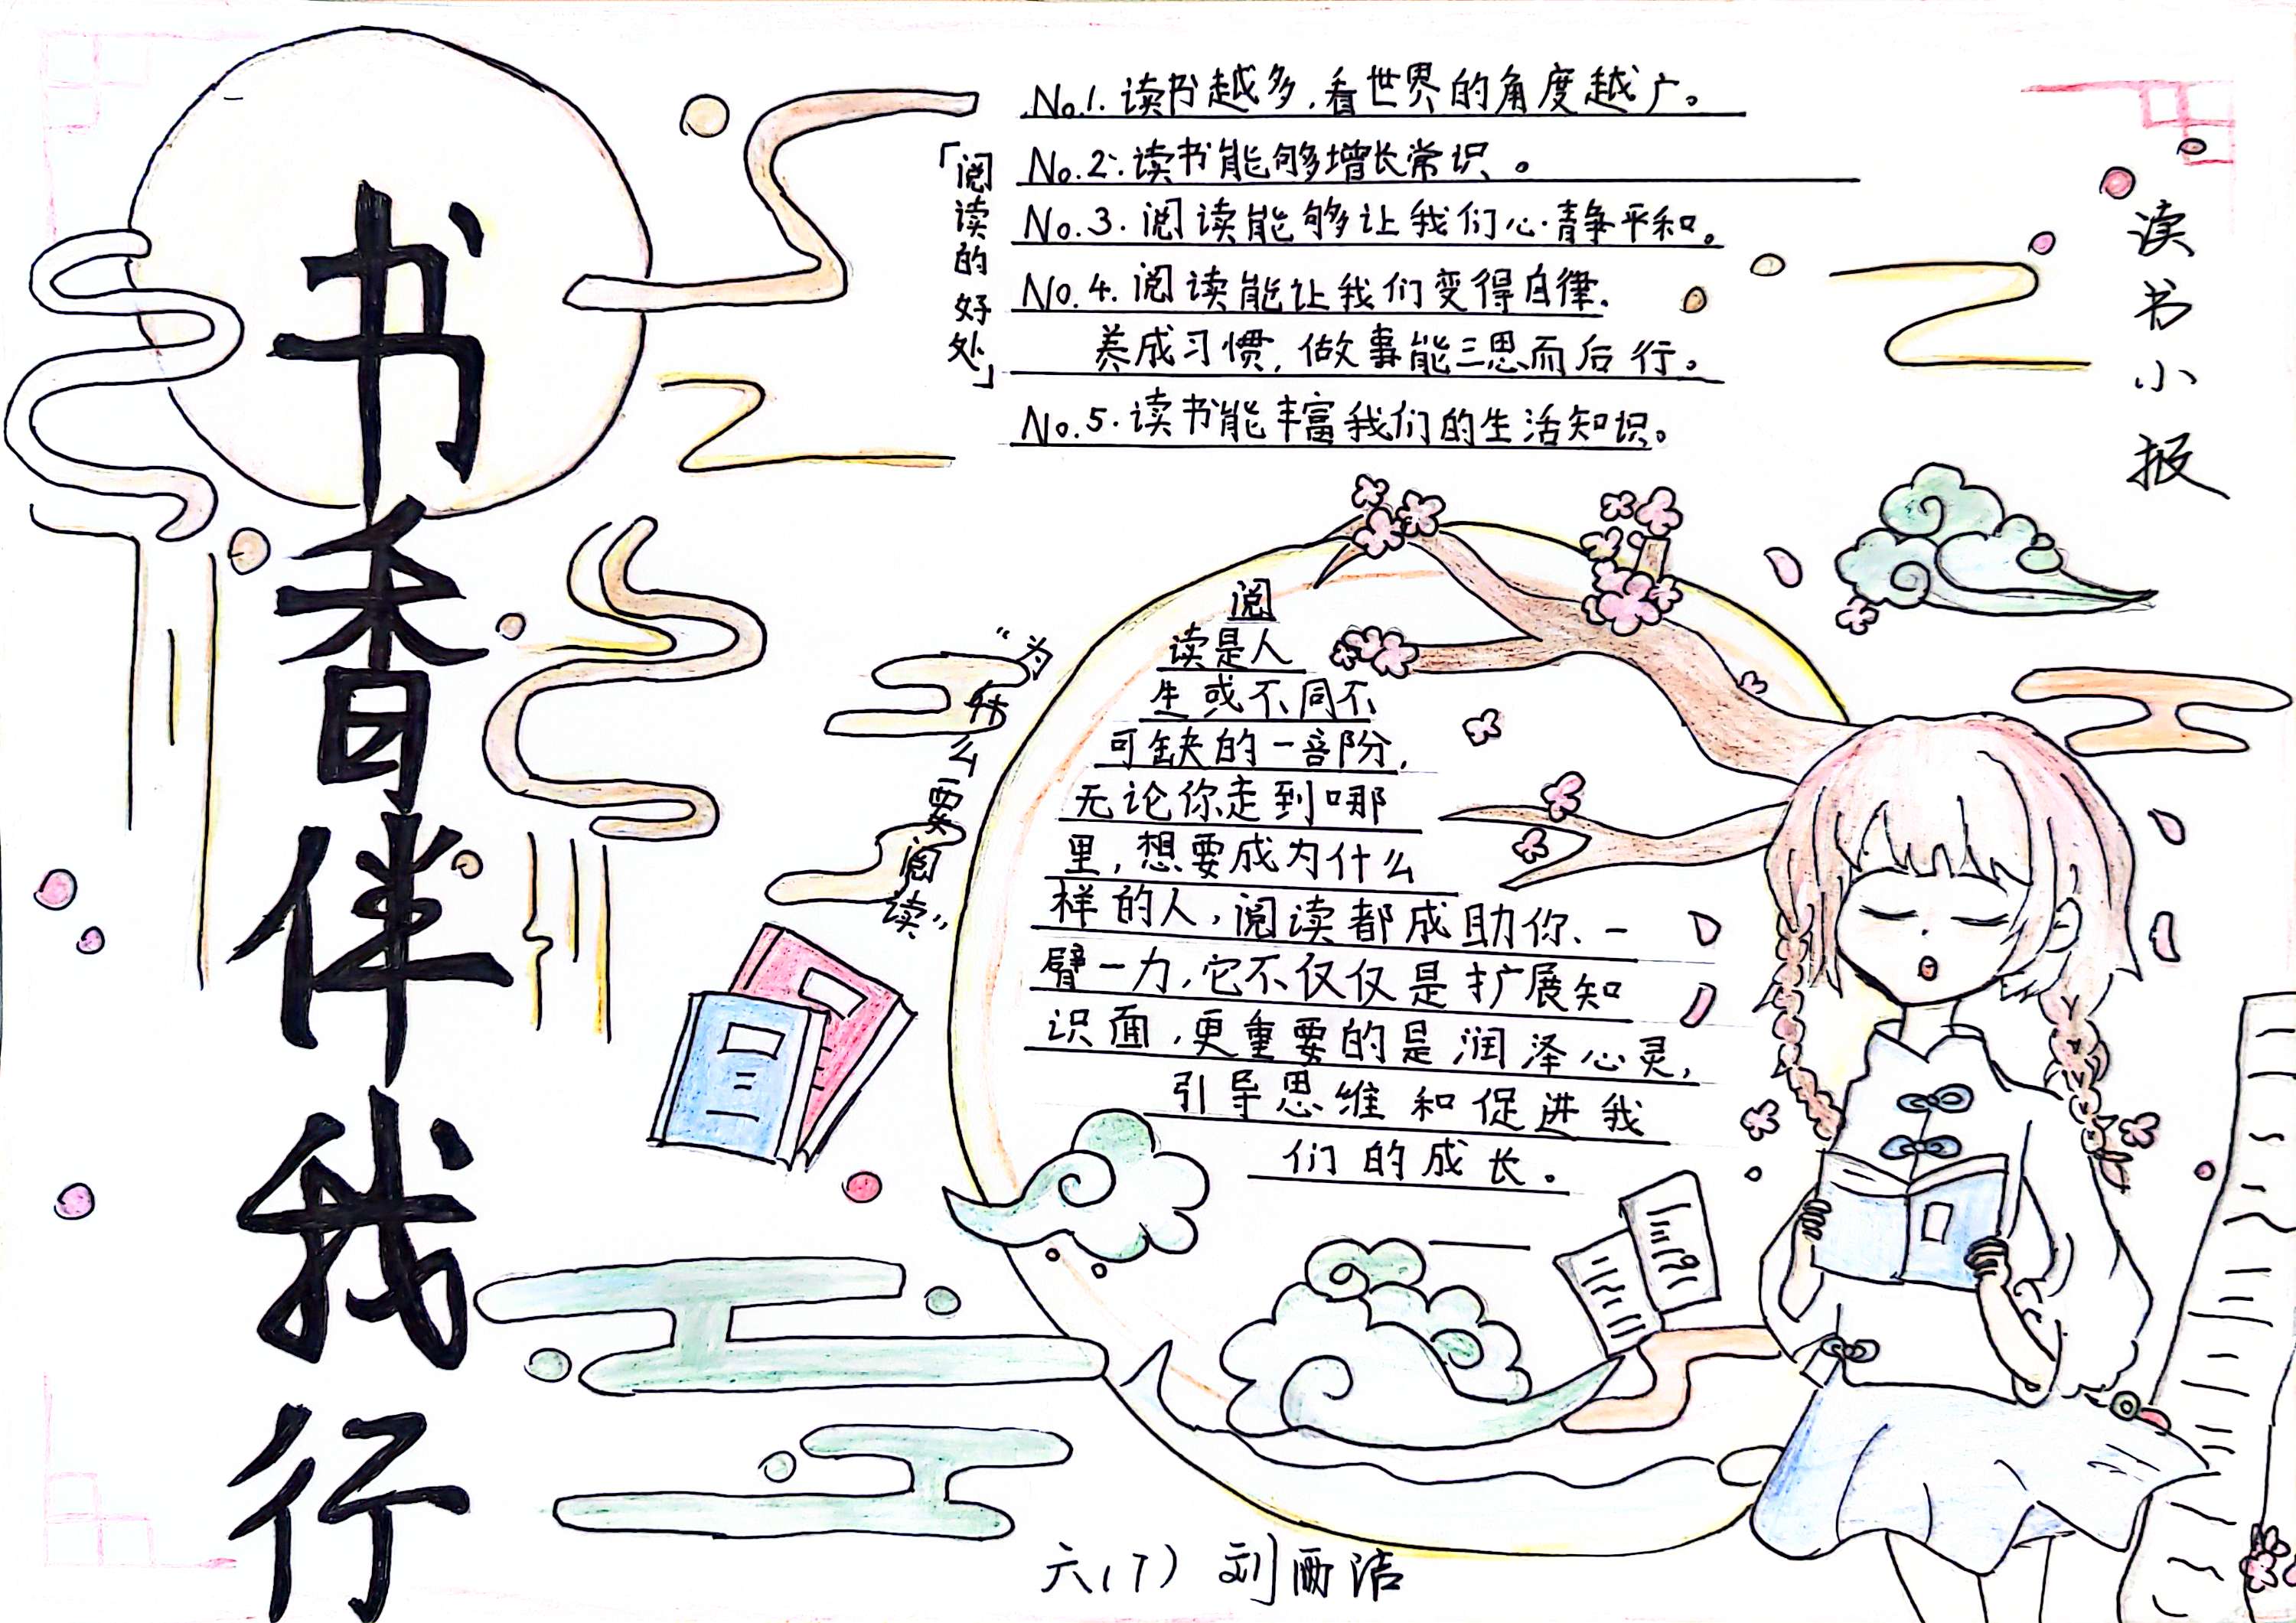 书香伴我行
「阅读的好处」
No.1.读书越多,看世界的角度越广。
No.2:读书能够增长常识。
No.3.阅读能够让我们心静平和。
No.4.阅读能让我们变得自律.
养成习惯,做事能三思而后行。
No.5.读书能丰富我们的生活知识。
读书小报
“为什么要阅读”
阅
读是人
生或不同不
可缺的一部分,
无论你走到哪
里,想要成为什么
样的人,阅读都成助你、一
臂一力,它不仅仅是扩展知
识面,更重要的是润泽心灵,
引导思维和促进我
们的成长。
六(7) 刘洁